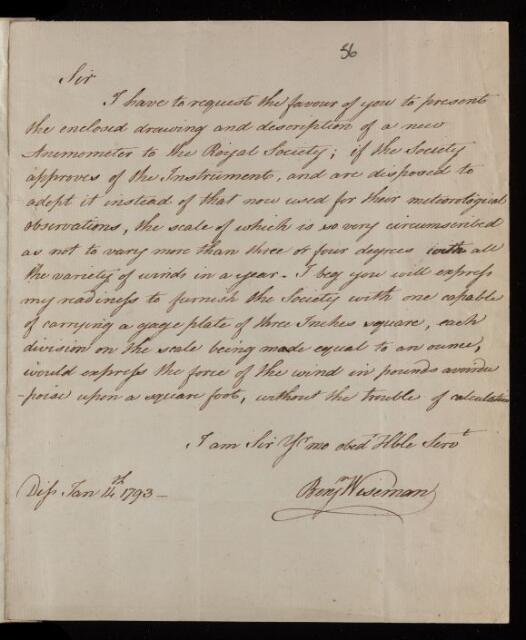 56
Sir
I have to request the favour of you to present
the enclosed drawing and description of a new
Anemometer to the Royal Society; if the Society
approves of the Instrument, and are disposed to
adopt it instead of that now used for their meteorological
observations, the scale of which is so very circumscribed
as not to vary more than three or four degrees with all
the variety of winds in a year - I beg you will express
my readiness to furnish the Society with one capable
of carrying a gage plate of three Inches square, each
division on the scale being made equal to an ounce,
would express the force of the wind in pounds avoirdu
-poise upon a square foot, without the trouble of calculation
I am Sir Yr. mo obedt Hble Servt
Diss Jan 14th 1793 -
Benjn Wiseman